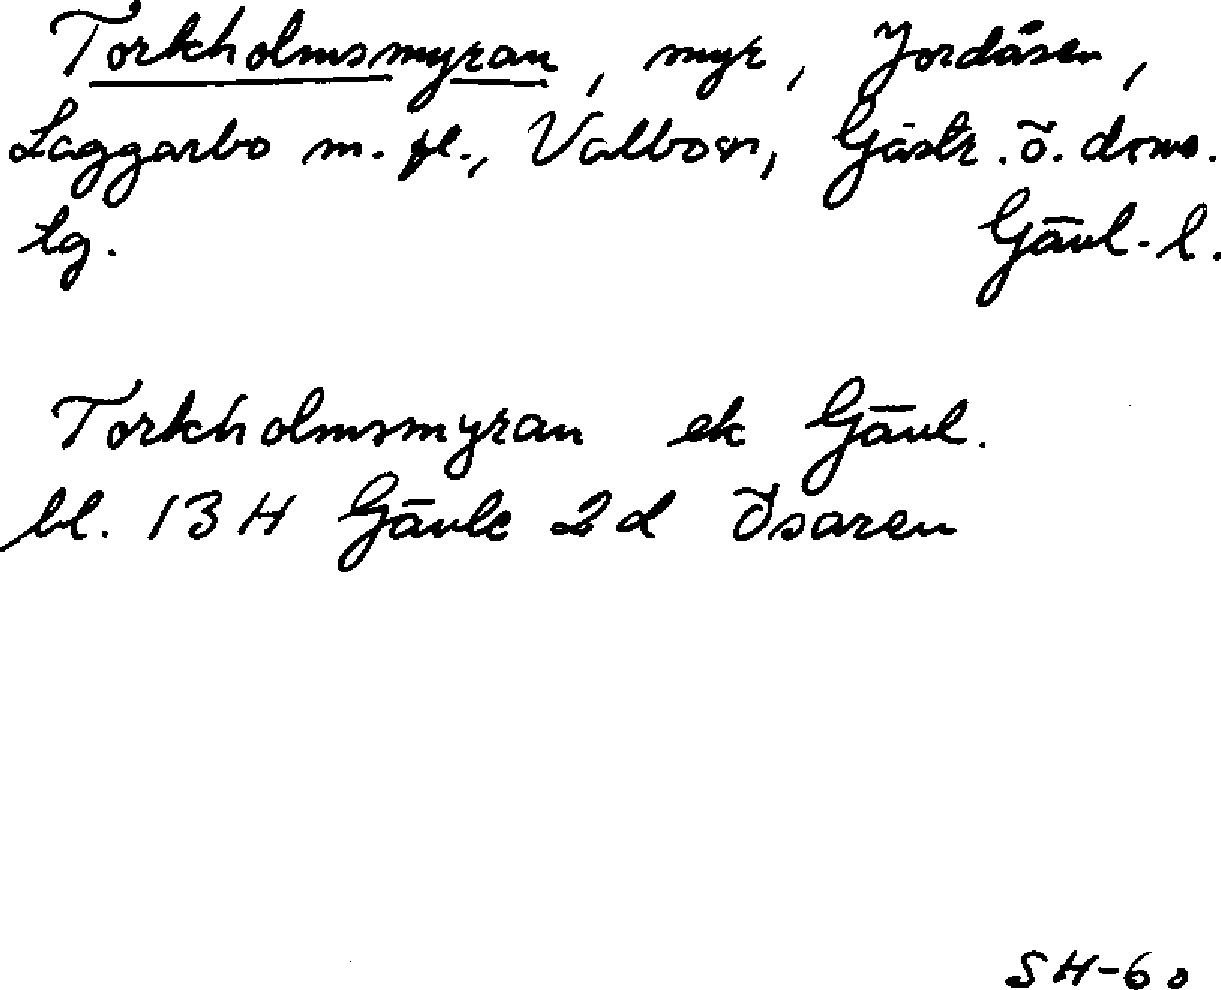 Torkholmsmyran, myr, Jordåsen,
Laggarbo m. fl., Valbo sn, Gästr. ö. doms.
lg. Gävl-l.
Torkholmsmyran ek Gävl.
bl. 13 H Gävle 2 d Ösaren
SH-60